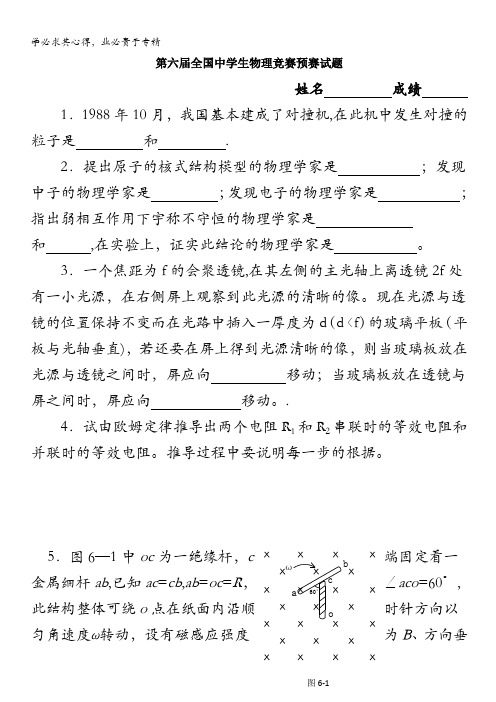 学必求其心得，业必贵于专精
第六届全国中学生物理竞赛预赛试题
姓名__________成绩______
1．1988 年 10 月，我国基本建成了对撞机,在此机中发生对撞的
粒子是 和 .
2．提出原子的核式结构模型的物理学家是 ；发现
中子的物理学家是 ;发现电子的物理学家是 ;
指出弱相互作用下宇称不守恒的物理学家是
和 ,在实验上，证实此结论的物理学家是 。
3．一个焦距为 f 的会聚透镜,在其左侧的主光轴上离透镜 2f 处
有一小光源，在右侧屏上观察到此光源的清晰的像。现在光源与透
镜的位置保持不变而在光路中插入一厚度为 d(d<f)的玻璃平板(平
板与光轴垂直)，若还要在屏上得到光源清晰的像，则当玻璃板放在
光源与透镜之间时，屏应向 移动；当玻璃板放在透镜与
屏之间时，屏应向 移动。.
4．试由欧姆定律推导出两个电阻 R₁ 和 R₂ 串联时的等效电阻和
并联时的等效电阻。推导过程中要说明每一步的根据。
5．图 6—1 中 oc 为一绝缘杆，c 端固定着一
金属细杆 ab,已知 ac=cb,ab=oc=R， ∠aco=60°，
此结构整体可绕 o 点在纸面内沿顺 时针方向以
匀角速度ω转动，设有磁感应强度 为 B、方向垂
x x x x
x ω x x b
x a 60° c x
x x x o
x x x x
x x x
x x x x
图 6-1